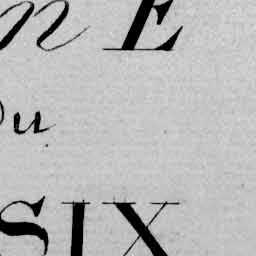 n E
Du
SIX